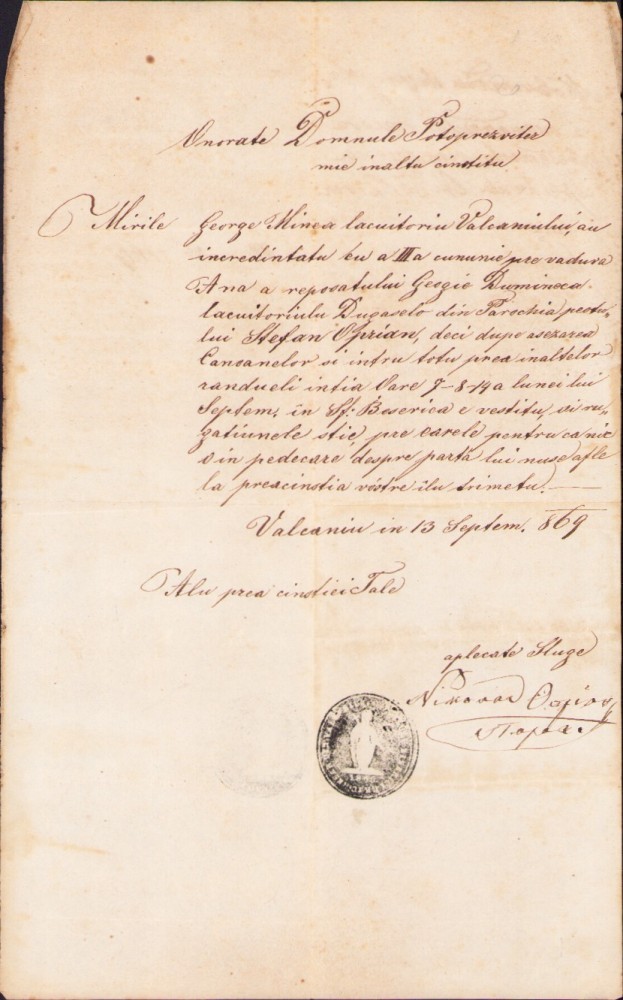 Onorate Domnule Potoprezviter
mie inaltu cinstitu
Mirile George Minea lacuitoriu Valcaniului, au
incredintatu cu a IIIa cununie pre vaduva
Ana a reposatului George Dumineca
lacuitoriulu Dugaselo din Parochia
lui Stefan Oprian, deci dupo asezarea
Canoanelor si intru totu prea inaltelor
randueli intia Oare 7-8-14 a lunei lui
Septem. in Sf: Beserica e vestitu, si ru„
gatiunele pre carele pentru ca nic
o in pedecare despre parta lui nuse afle
la preacinstia vóstre ilu trimetu. —
Valcaniu in 13 Septem. 869
Alu prea cinstiei Tale
aplecate Sluge